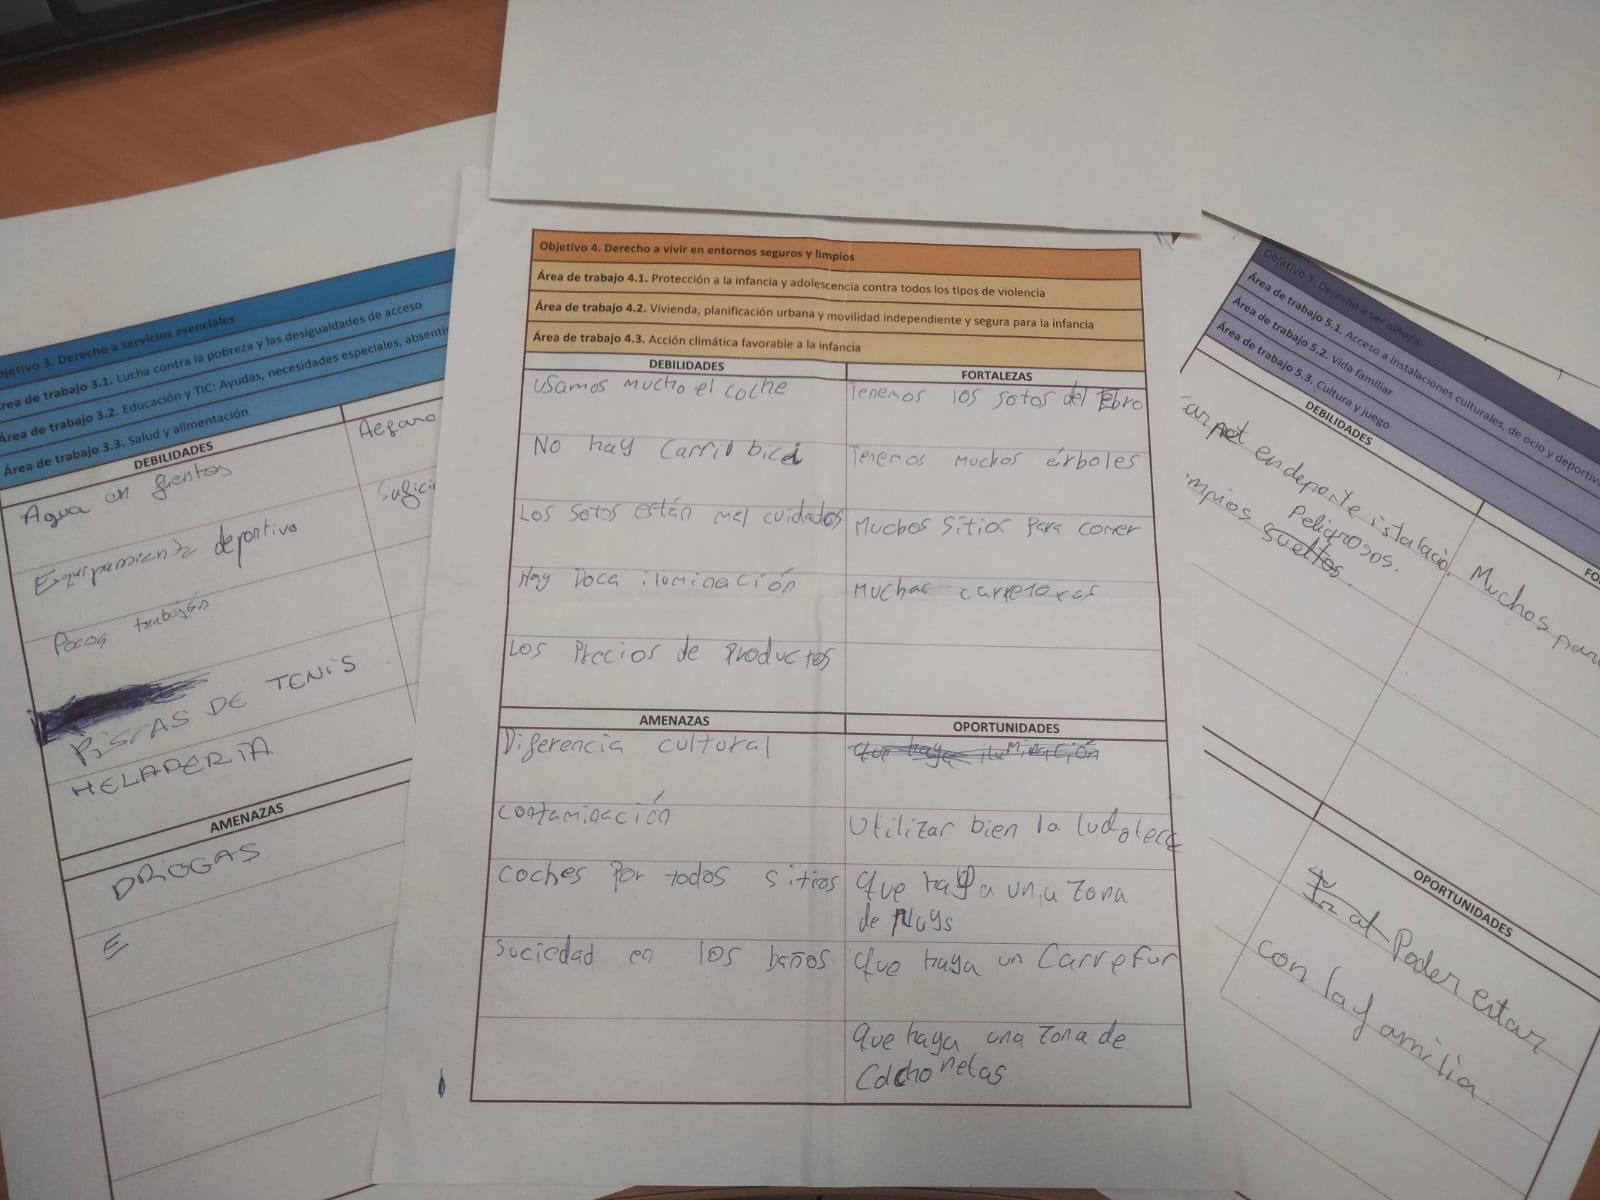 Objetivo 3. Derecho a servicios esenciales
Área de trabajo 3.1. Lucha contra la pobreza y las desigualdades de acceso
Área de trabajo 3.2. Educación y TIC: Ayudas, necesidades especiales,
Área de trabajo 3.3. Salud y alimentación
DEBILIDADES
Agua en fuentes
Equipamiento deportivo
Pocos trabajos
PISTAS DE TENIS
HELADERIA
AMENAZAS
DROGAS
E
Objetivo 4. Derecho a vivir en entornos seguros y limpios
Área de trabajo 4.1. Protección a la infancia y adolescencia contra todos los tipos de violencia
Área de trabajo 4.2. Vivienda, planificación urbana y movilidad independiente y segura para la infancia
Área de trabajo 4.3. Acción climática favorable a la infancia
DEBILIDADES
FORTALEZAS
Usamos mucho el coche
Tenemos los sotos del Ebro
No hay Carril bici
Tenemos muchos érboles
Los sotos están mal cuidados
Muchos sitios para comer
Hay poca iluminación
Muchas carreteras
Los Precios de Productos
AMENAZAS
OPORTUNIDADES
Diferencia cultural
Que haya iluminación
contaminación
Utilizar bien la ludoteca
coches por todos sitios
Que haya una zona
de plays
suciedad en los baños
Que haya un Carrefur
Que haya una zona de
Colchonetas
Objetivo 5. Derecho a ser niño/a
Área de trabajo 5.1. Acceso a instalaciones culturales, de ocio y deportivas
Área de trabajo 5.2. Vida familiar
Área de trabajo 5.3. Cultura y juego
DEBILIDADES
peligrosos.
sueltos.
Muchos
OPORTUNIDADES
Poder estar
con la familia.